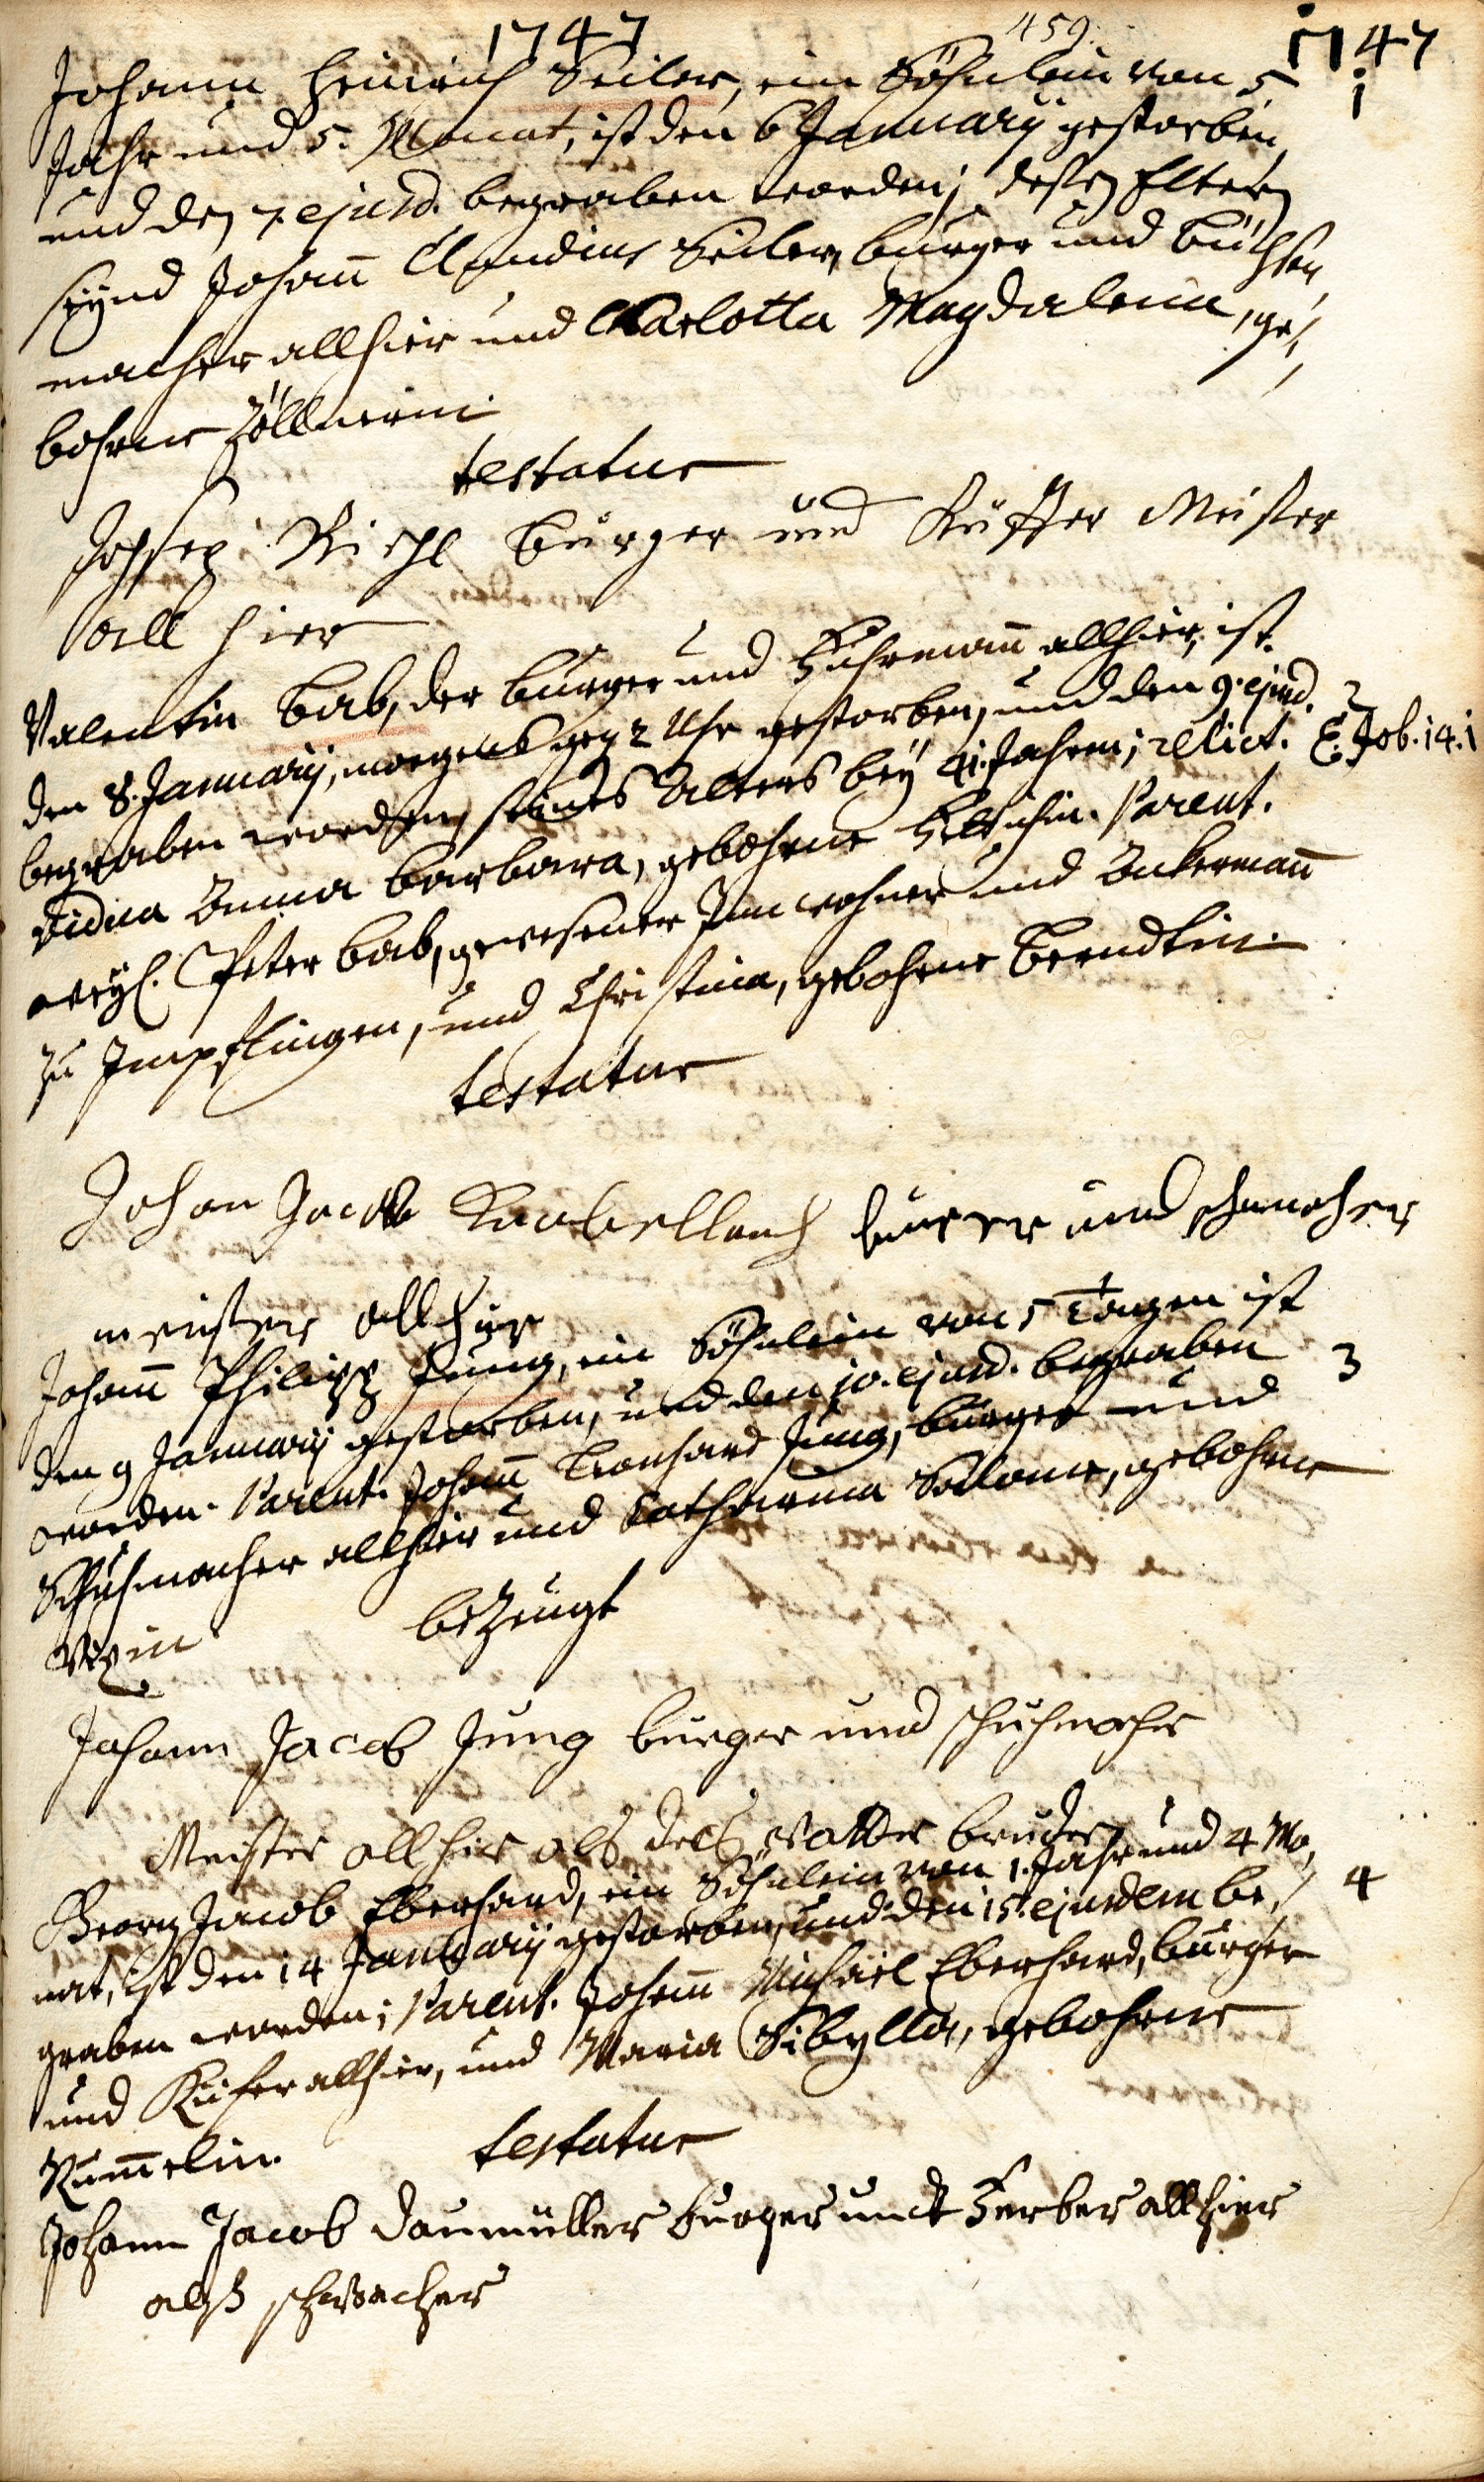 1747 459. 1747
Johann Heinrich Seiler, ein Söhnlein von 5 1
Jahr und 5. Monat, ist den 6 January gestorben,
und den 7. ejusd. begraben worden; dessen Eltern
seynd Johann Claudius Seiler, burger und büchsen,
macher allhier und Charlotta Magdalena, ge,
bohrne Zöllnerin.
testatur
Joseph Riehl burger und Küffer Meister
all hier
Valentin Bab, der burger und Fuhrmann allhier, ist
den 8. January, morgens geg 2 Uhr gestorben, und den 9. ejusd. 2
begraben worden, seines Alters bey 41. Jahren; relict. E. Job. 14. 1
vidua Anna Barbara, gebohrne Parent.
weyl. Peter Bab, gewesener Innwohner und Ackermann
zu Impflingen, und Christina, gebohrne Brendtlin.
testatur
Johan Jacob burger und schumacher
meister all hier
Johann Philipp Jung, ein Söhnlein von 5 Tagen ist
den 9 January gestorben, und den 10. ejusd. begraben 3
worden. Parent. Johann Leonhard Jung, burger und
Schuhmacher allhier und Catharina Salome, gebohrne

bezeugt
Johann Jacob Jung burger und schuhmacher
Meister all hier als des vatter bruder
Georg Jacob Eberhard, ein Söhnlein von 1. Jahr und 4 Mo,
nat, ist den 14 January gestorben, und den 15. ejusdem be, 4
graben worden; Parent. Johann Michael Eberhard, burger
und Küfer allhier, und Maria Sibylla, gebohrne
Kummelin.
testatur
Johann Jacob Daumüller burger undt Ferber all hier
alß schwacher